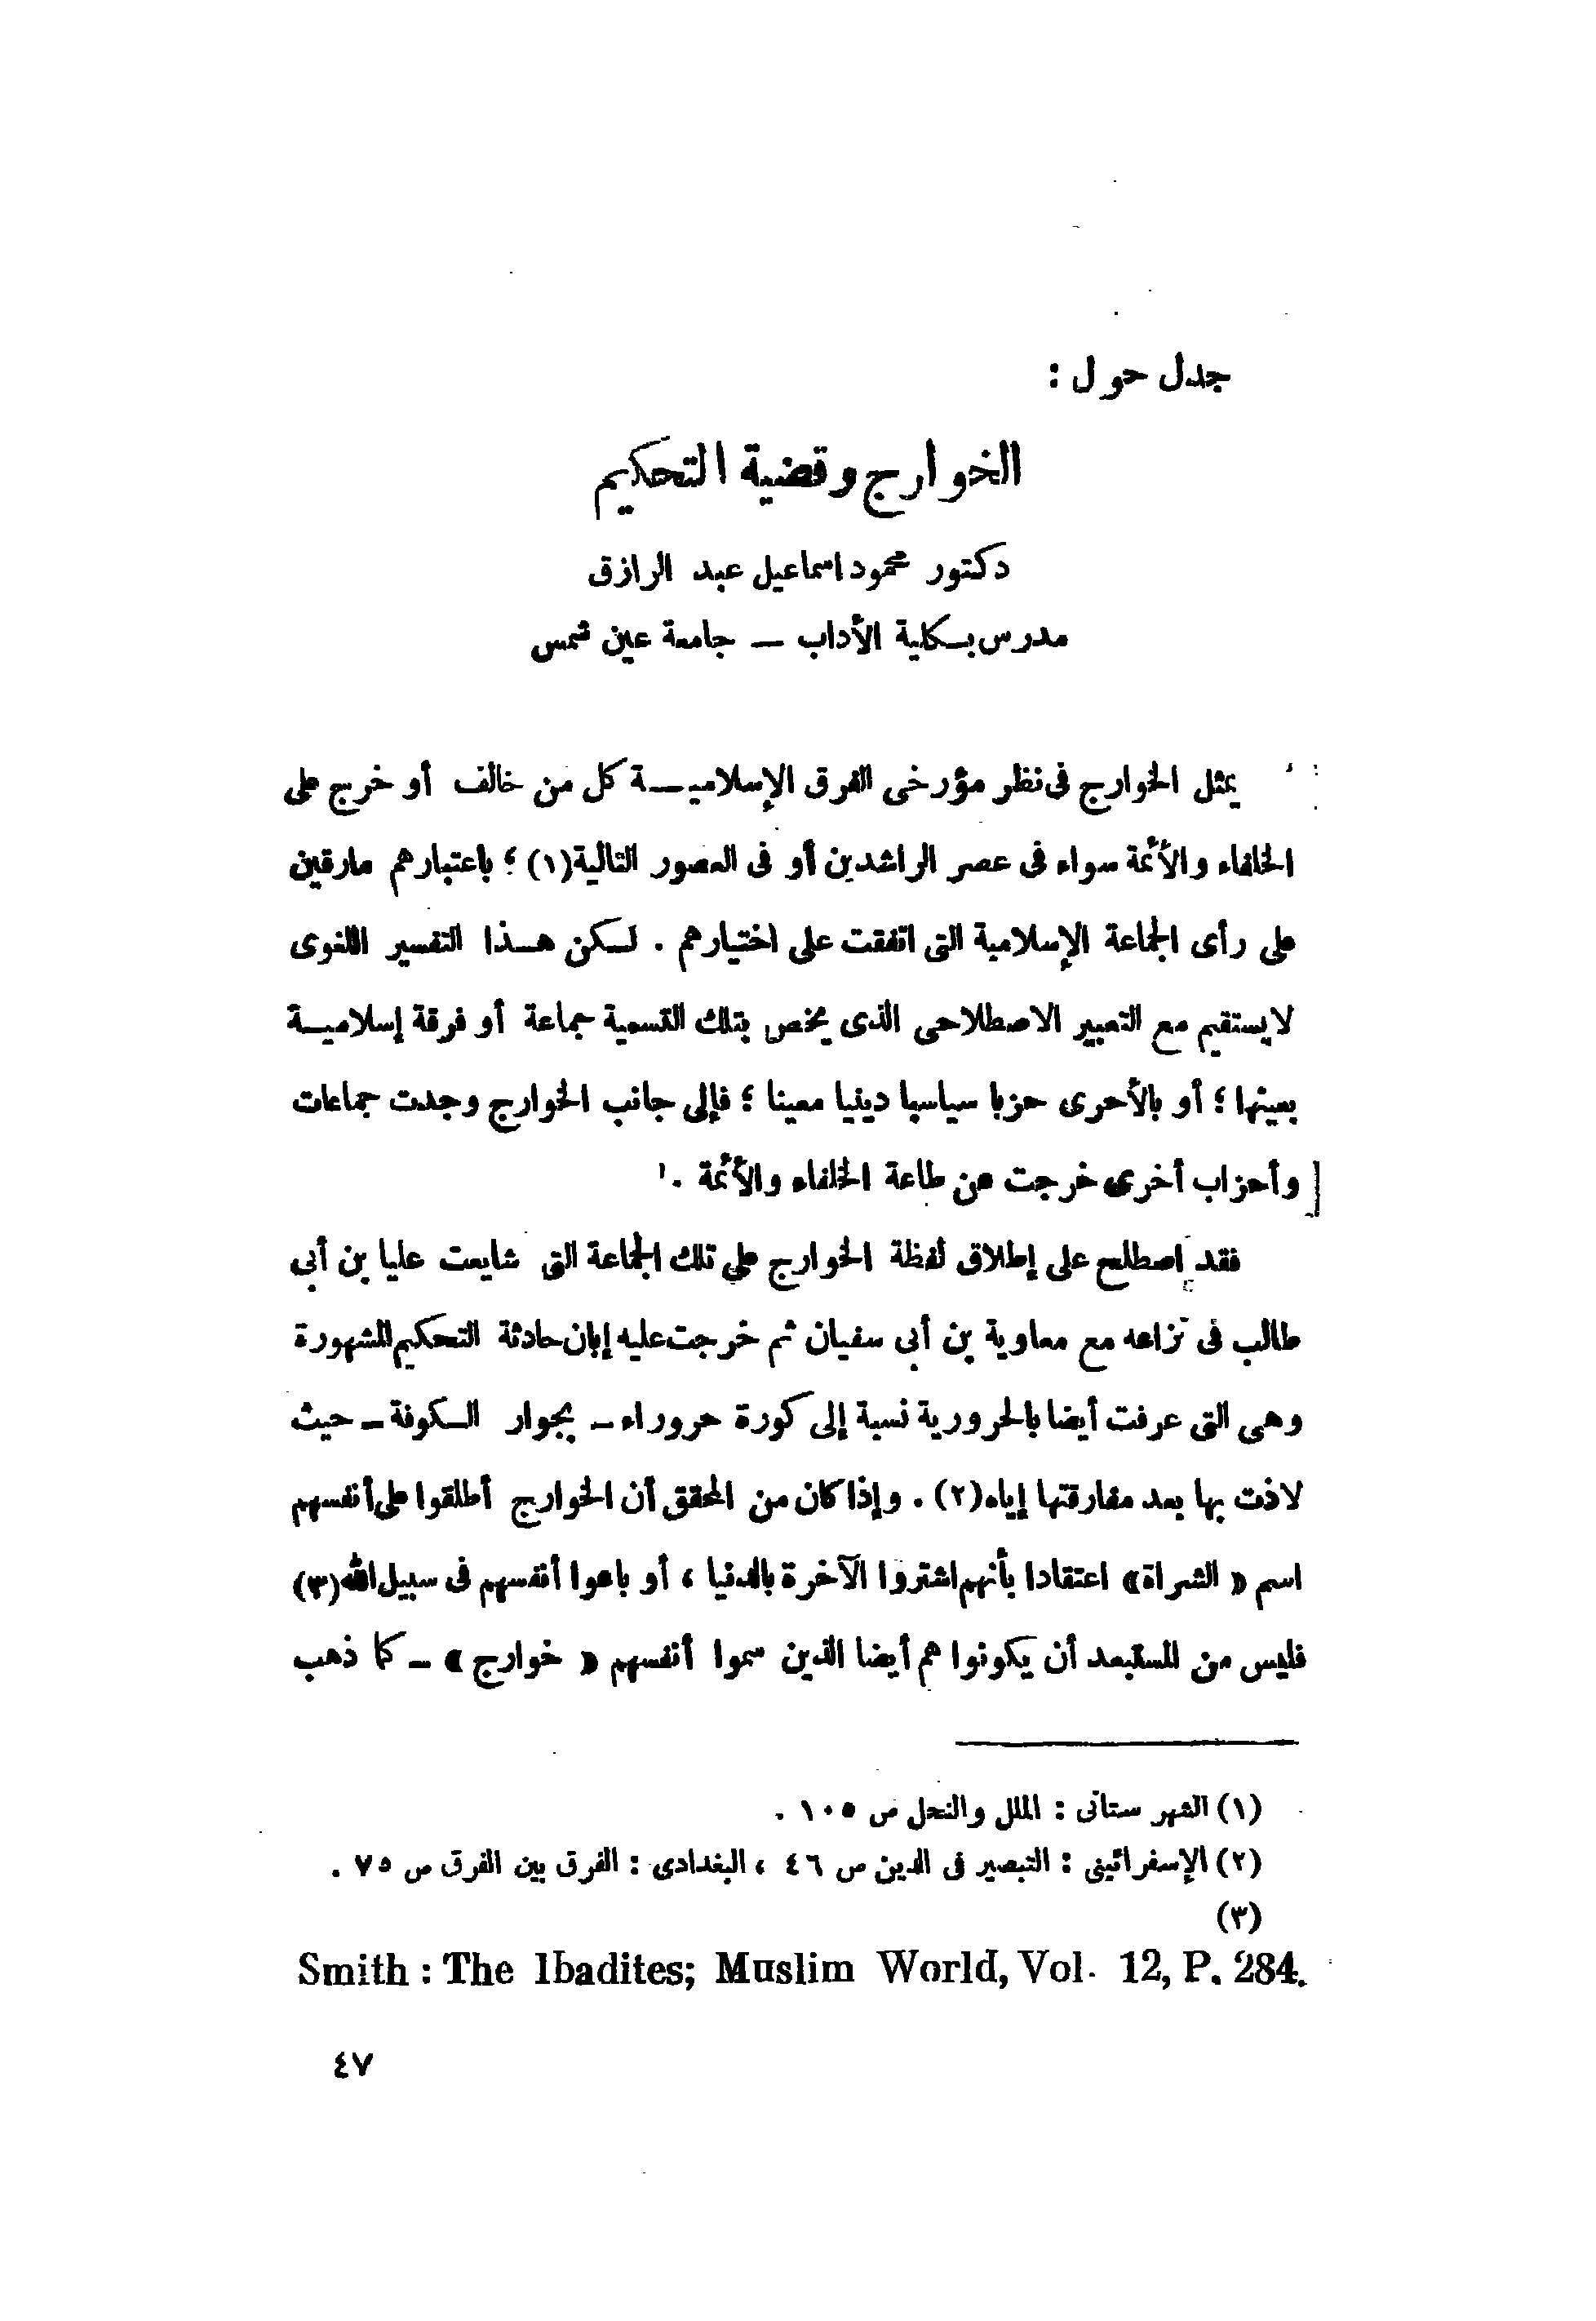 جدل حول :
الخوارج وقضية التحكيم
دكتور محمود اسماعيل عبد الرازق
مدرس بكلية الأداب – جامعة عين شمس
يمثل الخوارج فى نظر مؤرخى الفرق الإسلاميــة كل من خالف أو خرج على
الخلفاء والأئمة سواء فى عصر الراشدين أو فى العصور التالية(١) ؛ باعتبارهم مارقين
على رأى الجماعة الإسلامية التى اتفقت على اختيارهم . لـكن هـذا التفسير اللغوى
لا يستقيم مع التعبير الاصطلاحى الذى يخص بتلك التسمية جماعة أو فرقة إسلاميـة
بعينها ؛ أو بالأحرى حزبا سياسيا دينيا معينا ؛ فإلى جانب الخوارج وجدت جماعات
وأحزاب أخرى خرجت عن طاعة الخلفاء والأئمة .
فقد اصطلح على إطلاق لفظة الخوارج على تلك الجماعة التى شايعت عليا بن أبى
طالب فى نزاعه مع معاوية بن أبى سفيان ثم خرجت عليه إبان حادثة التحكيم المشهورة
وهى التى عرفت أيضا بالحرورية نسبة إلى كورة حروراء – بجوار الـكوفة – حيث
لاذت بها بعد مفارقتها إياه(٢) . وإذا كان من المحقق أن الخوارج أطلقوا على أنفسهم
اسم « الشراة» اعتقادا بأنهم اشتروا الآخرة بالدنيا ، أو باعوا أنفسهم فى سبيل الله(٣)
فليس من المستبعد أن يكونوا هم أيضا الذين سموا أنفسهم « خوارج » – كما ذهب
(١) الشهر ستانى : الملل والنحل ص ١٠٥ .
(٢) الإسفرائينى : التبصير فى الدين ص ٤٦ ، البغدادى : الفرق بين الفرق ص ٧٥ .
(٣)
Smith : The Ibadites; Muslim World, Vol. 12, P. 284.
٤٧